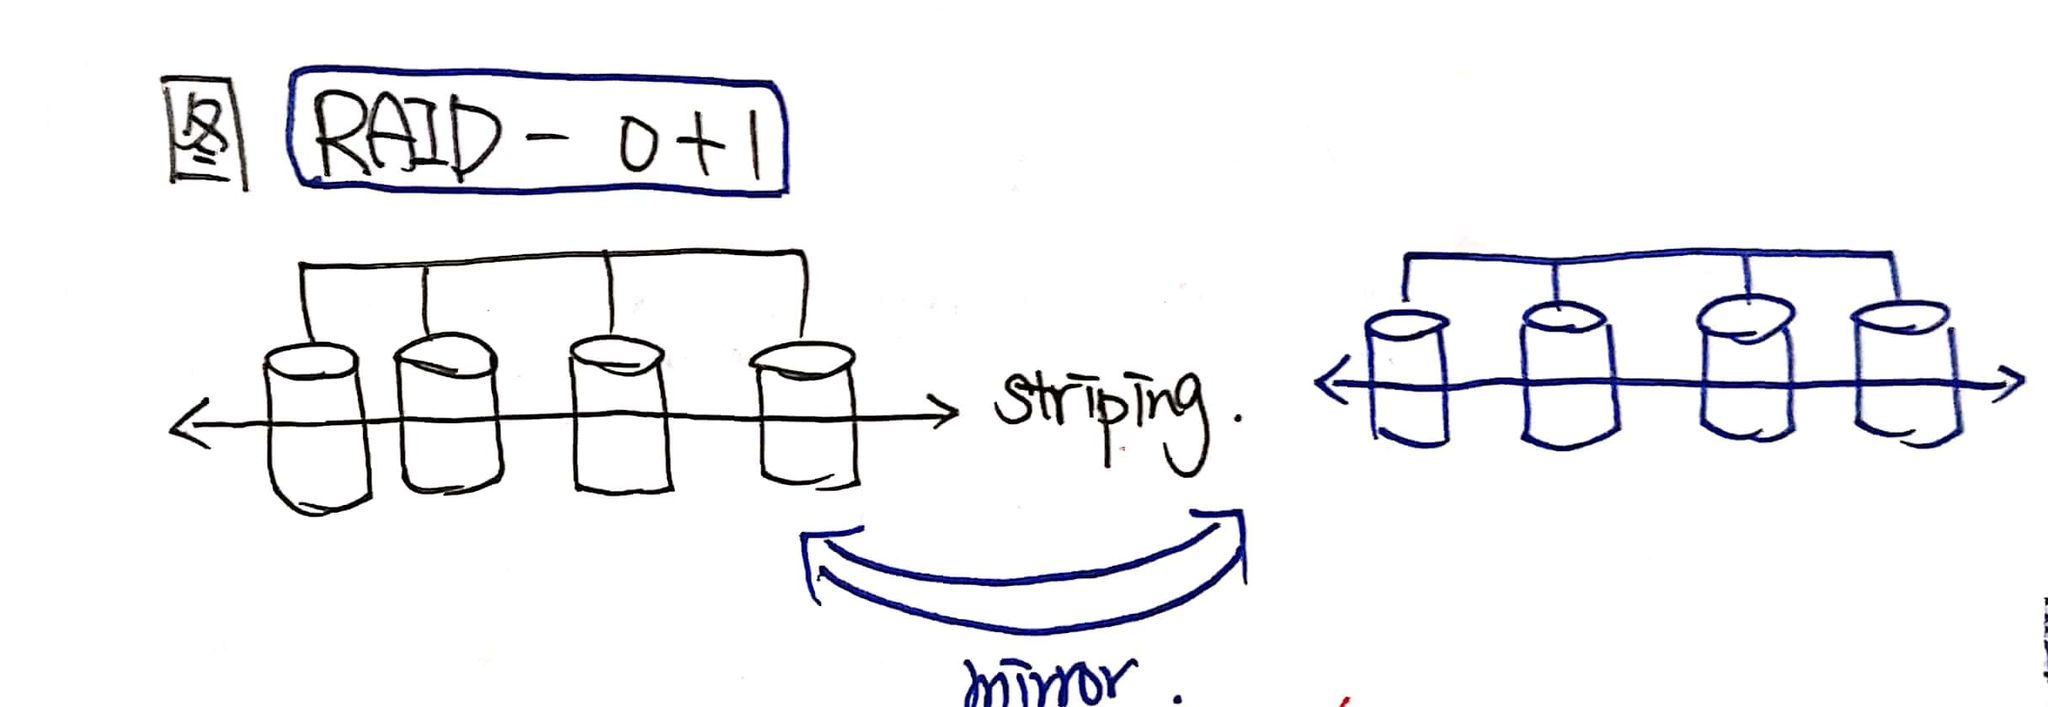 图 RAID - 0+1
striping.
mirror.